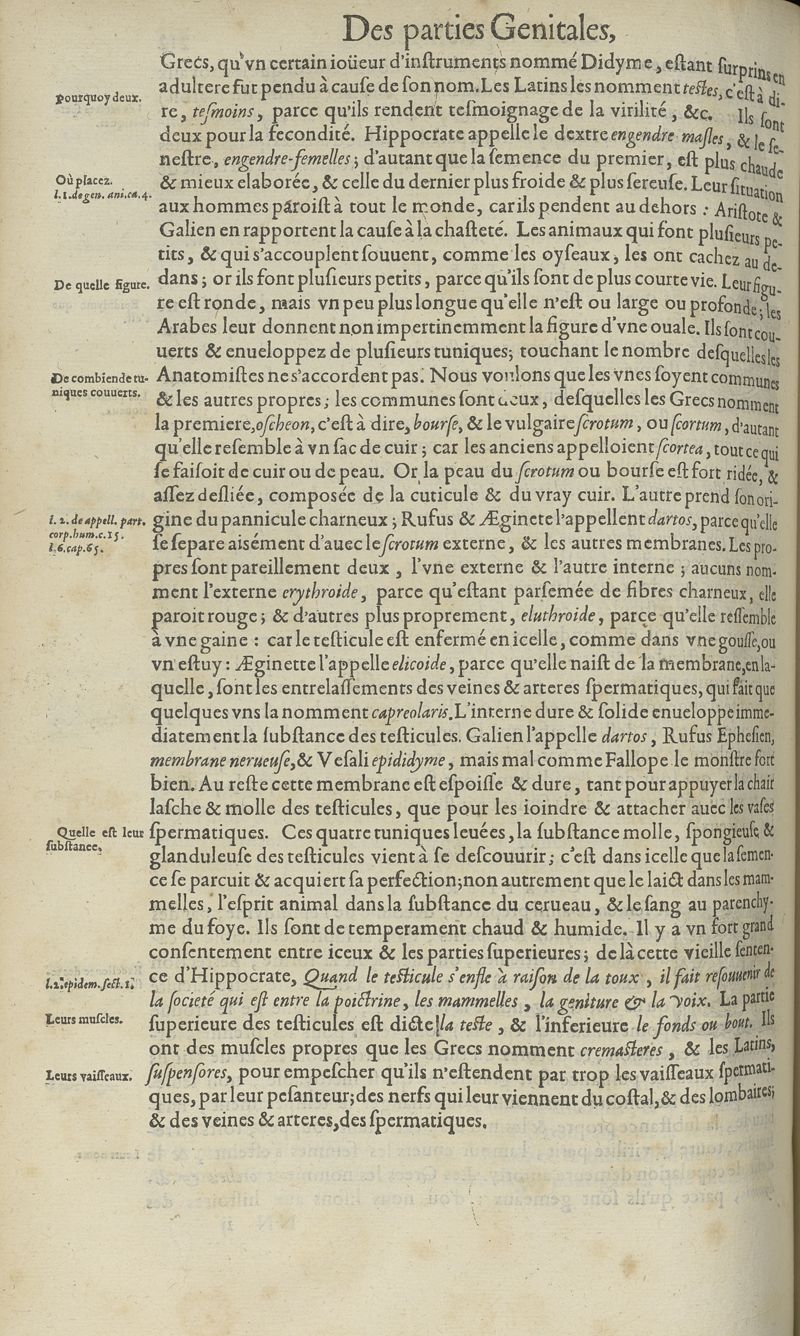 Des parties Genitales,
Grecs, qu'vn certain ioüeur d'inſtruments nommé Didyme, eſtant ſurprins en
adultere fut pendu à cauſe de ſon nom. Les Latins les nomment teſtes, c'eſt à di-
pourquoy deux.
re, teſmoins, parce qu'ils rendent teſmoignage de la virilité, &c. Ils ſont
deux pour la fecondité. Hippocrate appelle le dextre engendre maſles, & le ſe-
neſtre, engendre-femelles; d'autant que la ſemence du premier, eſt plus chaude
Où placez.
& mieux elaborée, & celle du dernier plus froide & plus ſereuſe. Leur ſituation
l. 1. de gen. ani. ca. 4.
aux hommes paroiſt à tout le monde, car ils pendent au dehors : Ariſtote &
Galien en rapportent la cauſe à la chaſteté. Les animaux qui font pluſieurs pe-
tits, & qui s'accouplent ſouuent, comme les oyſeaux, les ont cachez au de-
De quelle figure.
dans; or ils font pluſieurs petits, parce qu'ils ſont de plus courte vie. Leur figu-
re eſt ronde, mais vn peu plus longue qu'elle n'eſt ou large ou profonde; les
Arabes leur donnent non impertinemment la figure d'vne ouale. Ils ſont cou-
uerts & enueloppez de pluſieurs tuniques; touchant le nombre deſquelles les
De combien de tu-
Anatomiſtes ne s'accordent pas. Nous voulons que les vnes ſoyent communes
niques couuerts.
& les autres propres; les communes ſont deux, deſquelles les Grecs nomment
la premiere, oſcheon, c'eſt à dire, bourſe, & le vulgaire ſcrotum, ou ſcortum, d'autant
qu'elle reſemble à vn ſac de cuir; car les anciens appelloient ſcortea, tout ce qui
ſe faiſoit de cuir ou de peau. Or la peau du ſcrotum ou bourſe eſt fort ridée, &
aſſez deſliée, compoſée de la cuticule & du vray cuir. L'autre prend ſon ori-
l. 2. de appell. part.
gine du pannicule charneux; Rufus & Æginete l'appellent dartos, parce qu'elle
corp. hum. c. 15.
l. 6. cap. 65.
ſe ſepare aisément d'auec le ſcrotum externe, & les autres membranes. Les pro-
pres ſont pareillement deux, l'vne externe & l'autre interne; aucuns nom-
ment l'externe erythroide, parce qu'eſtant parſemée de fibres charneux, elle
paroit rouge; & d'autres plus proprement, eluthroide, parce qu'elle reſſemble
à vne gaine : car le teſticule eſt enfermé en icelle, comme dans vne gouſſe, ou
vn eſtuy : Æginette l'appelle elicoide, parce qu'elle naiſt de la membrane, en la-
quelle, ſont les entrelaſſements des veines & arteres ſpermatiques, qui fait que
quelques vns la nomment capreolaris. L'interne dure & ſolide enueloppe imme-
diatement la ſubſtance des teſticules. Galien l'appelle dartos, Rufus Epheſien,
membrane nerueuſe, & Veſali epididyme, mais mal comme Fallope le monſtre fort
bien. Au reſte cette membrane eſt eſpoiſſe & dure, tant pour appuyer la chair
laſche & molle des teſticules, que pour les ioindre & attacher auec les vaſes
Quelle eſt leur
ſpermatiques. Ces quatre tuniques leuées, la ſubſtance molle, ſpongieuſe, &
ſubſtance.
glanduleuſe des teſticules vient à ſe deſcouurir; c'eſt dans icelle que la ſemen-
ce ſe parcuit & acquiert ſa perfection; non autrement que le laict dans les mam-
melles, l'eſprit animal dans la ſubſtance du cerueau, & le ſang au parenchy-
me du foye. Ils ſont de temperament chaud & humide. Il y a vn fort grand
conſentement entre iceux & les parties ſuperieures; de là cette vieille ſenten-
l. 2. epidem. ſect. 1.
ce d'Hippocrate, Quand le teſticule s'enfle à raiſon de la toux, il fait reſouuenir de
la ſocieté qui eſt entre la poictrine, les mammelles, la geniture & la voix. La partie
Leurs muſcles.
ſuperieure des teſticules eſt dicte la teſte, & l'inferieure le fonds ou bout. Ils
ont des muſcles propres que les Grecs nomment cremaſteres, & les Latins,
Leurs vaiſſeaux.
ſuſpenſores, pour empeſcher qu'ils n'eſtendent par trop les vaiſſeaux ſpermati-
ques, par leur peſanteur; des nerfs qui leur viennent du coſtal, & des lombaires;
& des veines & arteres, des ſpermatiques.